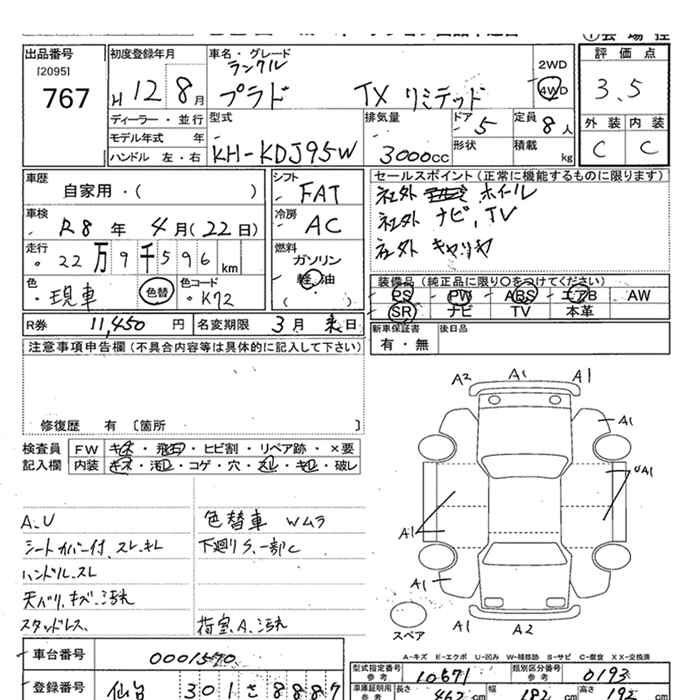 出品番号 初度登録年月 車名・グレード
[2095] ランクル 2WD 評価点
767 H 12 8月 プラド TX リミテッド 4WD 3.5
ディーラー・並行 型式 排気量 ドア 5 定員 8人 外装 内装
モデル年式 年 形状 積載
ハンドル 左・右 KH-KDJ95W 3000cc kg C C
車歴 シフト セールスポイント(正常に機能するものに限ります)
自家用・( ) FAT 社外 ホイル
車検 冷房 社外 ナビ, TV
R8年 4月(22日) AC 社外 キャリヤ
走行 燃料
22万9千596km ガソリン
色 色コード 軽油 装備品(純正品に限り○をつけてください)
現車 色替 K72 ( ) PS PW ABS エアB AW
SR ナビ TV 本革
R券 11,450円 名変期限 3月末日 新車保証書 後日品
注意事項申告欄(不具合内容等は具体的に記入して下さい) 有・無
A2 A1 A1
修復歴 有 〔箇所 〕 A1
検査員 FW キズ・飛石・ヒビ割・リペア跡・×要
記入欄 内装 キズ・汚れ・コゲ・穴・スレ・キレ・破レ UA1
A.U 色替車 Wムラ
シートカバー付、スレ、キレ 下廻りS.一部C A1
ハンドル.スレ
天バリ.キズ.汚れ A1
スタッドレス. 指室.A.汚れ スペア A1 A2
A-キズ E-エクボ U-凹み W-補修跡 S-サビ C-腐食 XX-交換済
車台番号 0001570 型式指定番号 参考 10671 類別区分番号 参考 0193
登録番号 仙台 301 さ 8887 車庫証明用 参考 長さ 462cm 幅 182cm 高さ 192cm